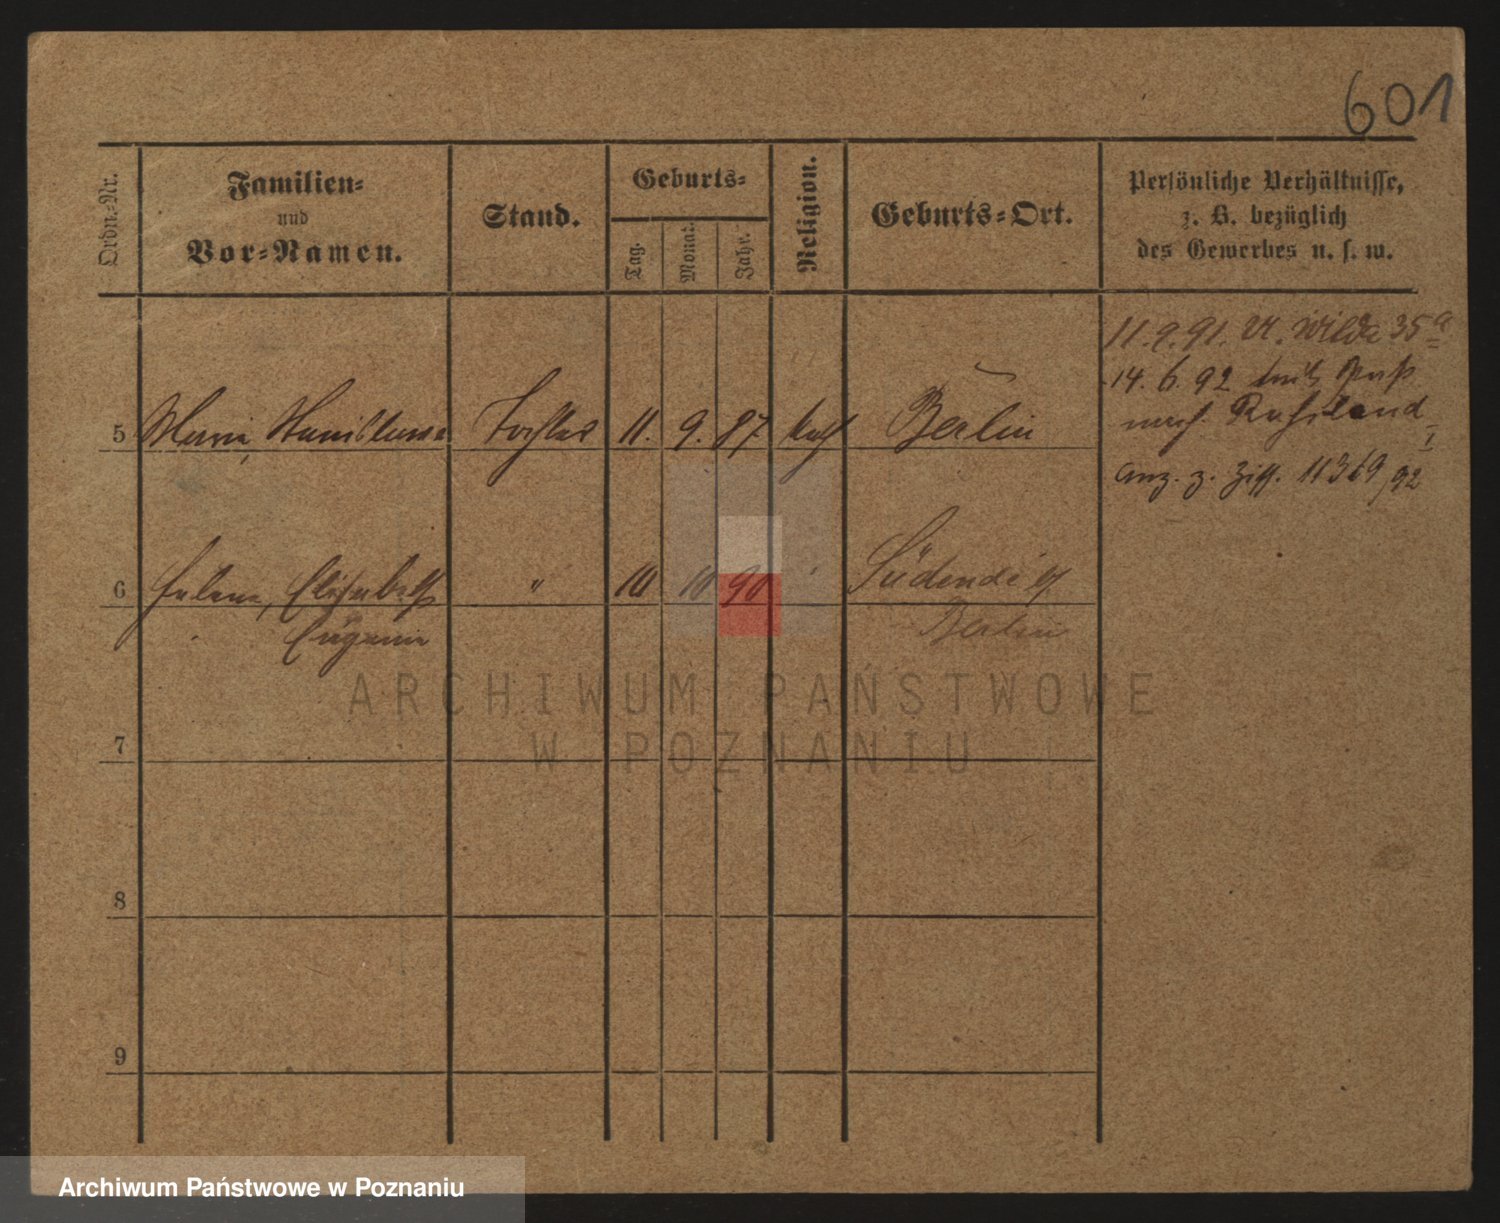 601
Ordn.-Nr.
Familien-
und
Vor-Namen.
Stand.
Geburts-
Tag.
Monat.
Jahr.
Religion.
Geburts-Ort.
Persönliche Verhältnisse,
z. B. bezüglich
des Gewerbes u. s. w.
11.9.91. St. Wilda 35a
14.6.92 mit Paß
nach Rußland
Anz. z. Ziff. 11369/92
5 Maria, Stanislawa Tochter 11. 9. 87 kath Berlin
6 Helene, Elisabeth " 10 10 90 Südende b/
Eugenie Berlin
7
8
9
ARCHIWUM PAŃSTWOWE
W POZNANIU
Archiwum Państwowe w Poznaniu